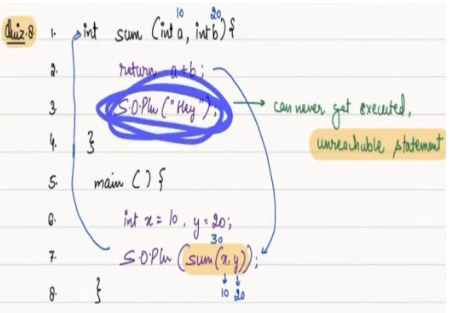 10 20
Quiz: 8 1. int sum (int a, int b) {
2. return a+b;
3. S.O.Pln ("Hey"); → can never get executed,
4. } unreachable statement
5. main () {
6. int x = 10, y = 20;
30
7. S.O.Pln (sum(x,y));
10 20
8. }